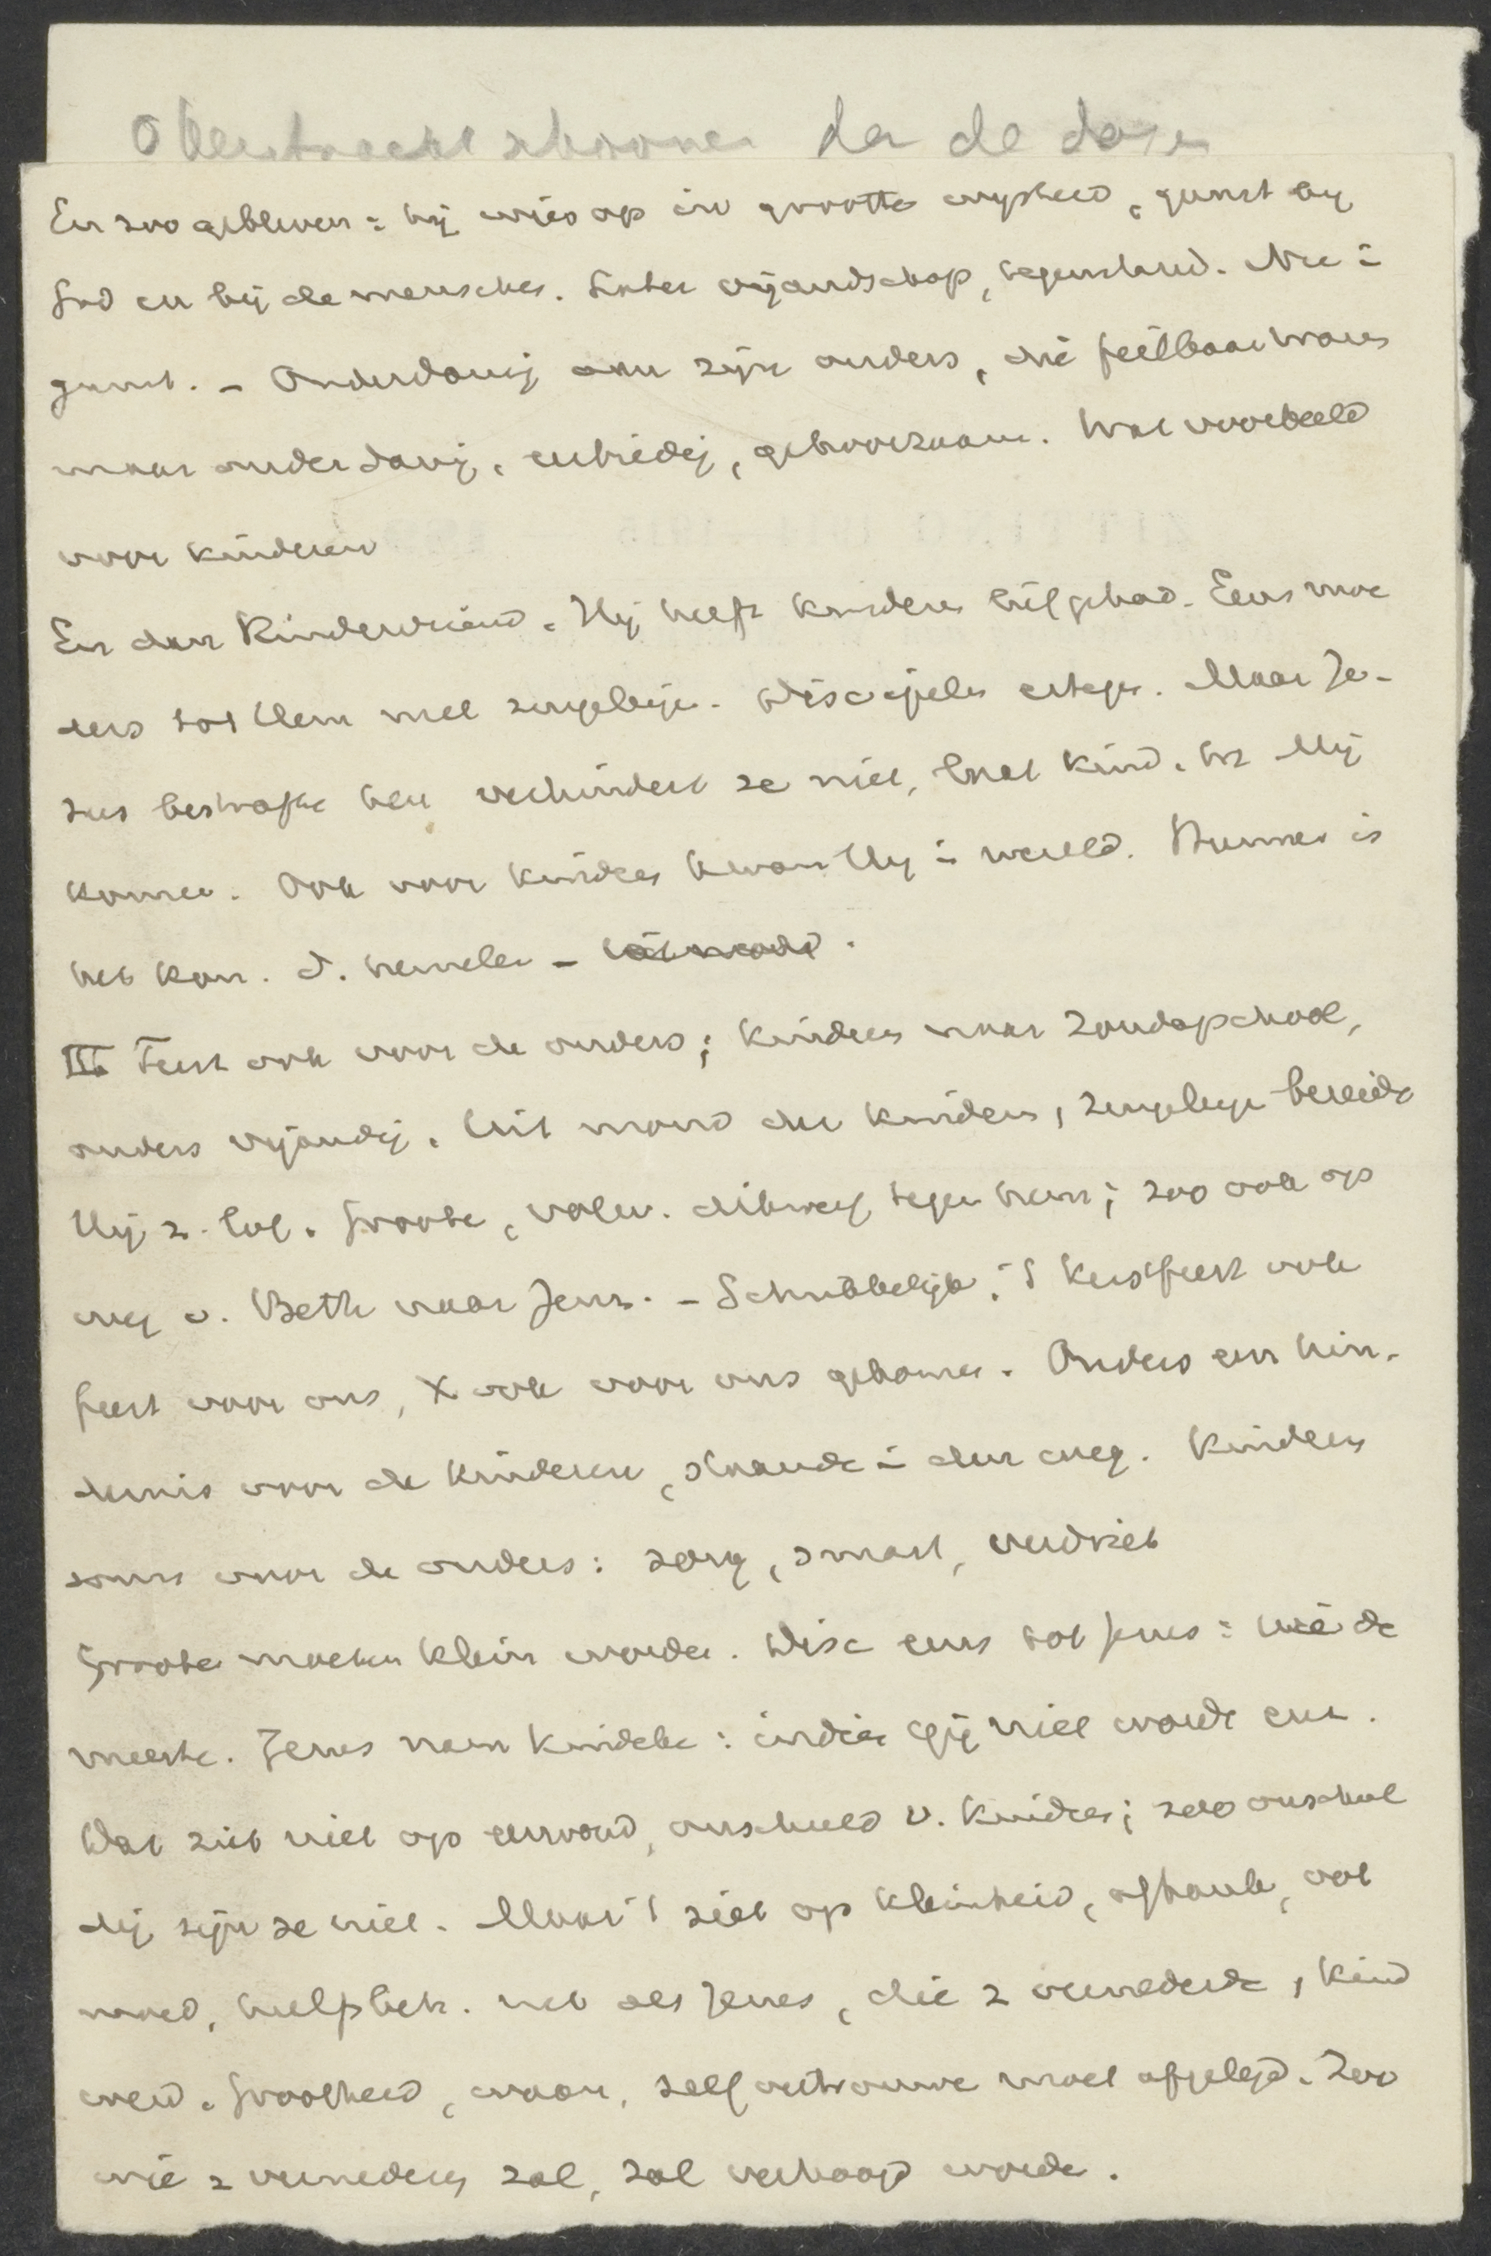 En zoo gebleven: hij wies op in grootte wijsheid, gunst bij
God en bij de menschen. Later vijandschap, tegenstand. Nu in
gunst. – Onderdanig aan zijn ouders, die feilbaar waren
maar onderdanig, eerbiedig, gehoorzaam. Wat voorbeeld
voor kinderen
En dan Kindervriend. Hij heeft kinderen lief gehad. Eens moe
ders tot Hem met zuigelingen. Discipelen ertegen. Maar Je-
zus bestrafte hen verhindert ze niet, laat kind. tot Mij
komen. Ook voor kinderen kwam Hij in wereld. Immers is
het kon. d. hemelen –
III. Feest ook voor de ouders; kinderen naar Zondagschool,
ouders vijandig. Uit mond der kinderen, zuigelingen bereidde
Hij z. lof. Groote, volw. dikwerf tegen hem; zoo ook op
weg v. Beth naar Jeruz. – Schrikkelijk. 't Kerstfeest ook
feest voor ons, X ook voor ons geboren. Ouders een hin-
dernis voor de kinderen, staande in den weg. Kinderen
soms voor de ouders: zorg, smart, verdriet
Grooten moeten klein worden. Disc eens tot Jezus: wie de
meeste. Jezus nam kindeke: indien gij niet wordt enz.
Dat ziet niet op eenvoud, onschuld v. kinderen; zoo onschul
dig zijn ze niet. Maar 't ziet op kleinheid, afhank, oot
moed, hulpbeh. net als Jezus, die z vernederde, kind
werd. Grootheid, waan, zelfvertrouwen moet afgelegd. Zoo
wie z vernederen zal, zal verhoogd worden.